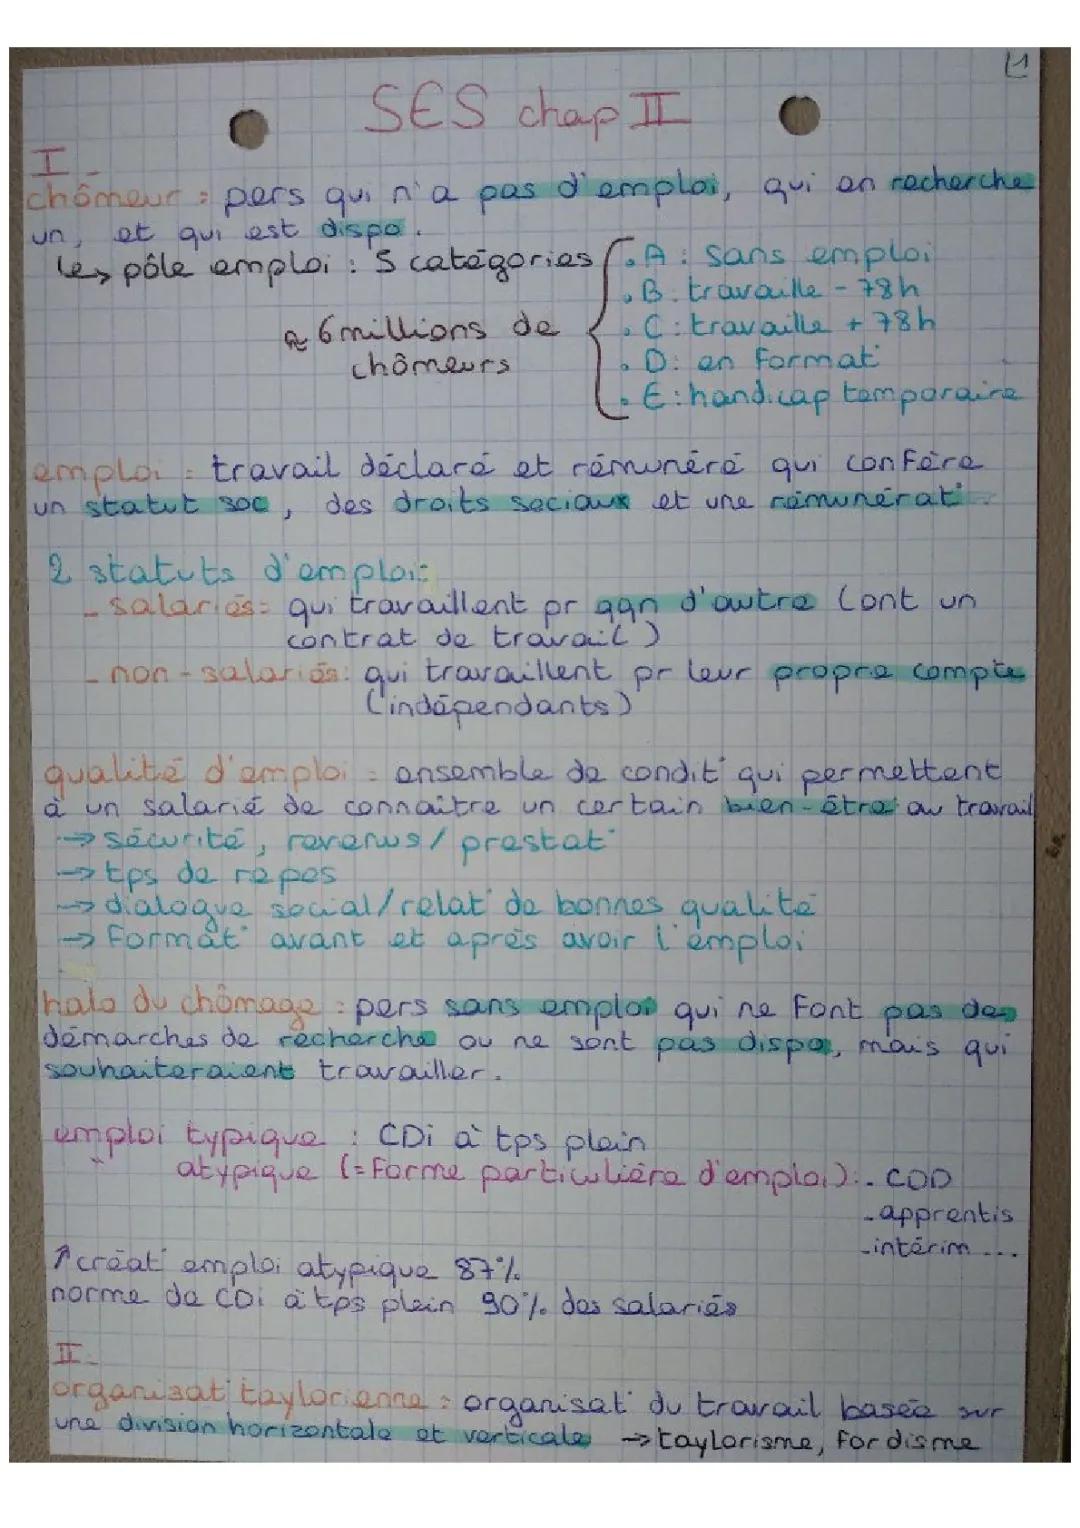 1
SES chap II
I-
chômeur : pers qui n'a pas d'emploi, qui en recherche
un, et qui est dispo.
les pôle emploi : 5 catégories
≈ 6 millions de
chômeurs
. A : sans emploi
. B : travaille - 78h
. C : travaille + 78h
. D : en format°
. E : handicap temporaire
emploi : travail déclaré et rémunéré qui confère
un statut soc, des droits sociaux et une rémunérat°.
2 statuts d'emploi :
- salariés : qui travaillent pr qqn d'autre (ont un
contrat de travail)
- non-salariés : qui travaillent pr leur propre compte
(indépendants)
qualité d'emploi : ensemble de condit° qui permettent
à un salarié de connaître un certain bien-être au travail
→ sécurité, revenus/prestat°
→ tps de repos
→ dialogue social/relat° de bonnes qualité
→ format° avant et après avoir l'emploi
halo du chômage : pers sans emploi qui ne font pas des
démarches de recherche ou ne sont pas dispo, mais qui
souhaiteraient travailler.
emploi typique : CDi à tps plein
atypique (= forme particulière d'emploi) : - CDD
- apprentis
- intérim ...
↑ créat° emploi atypique 87%
norme de CDi à tps plein 90% des salariés
II-
organisat° taylorienne : organisat° du travail basée sur
une division horizontale et verticale → taylorisme, fordisme